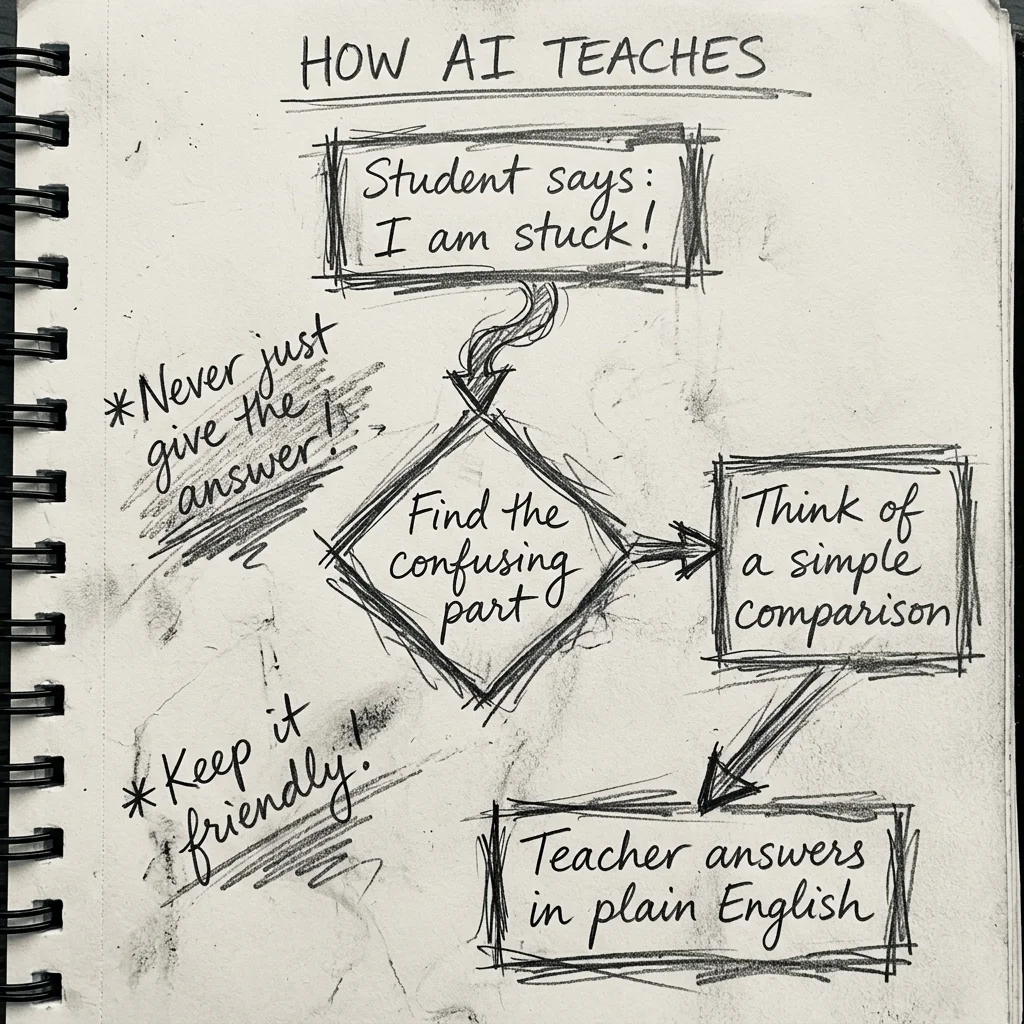 HOW AI TEACHES
Student says:
I am stuck!
*Never just
give the
answer!
Find the
confusing
part
Think of
a simple
comparison
*Keep it
friendly!
Teacher answers
in plain English